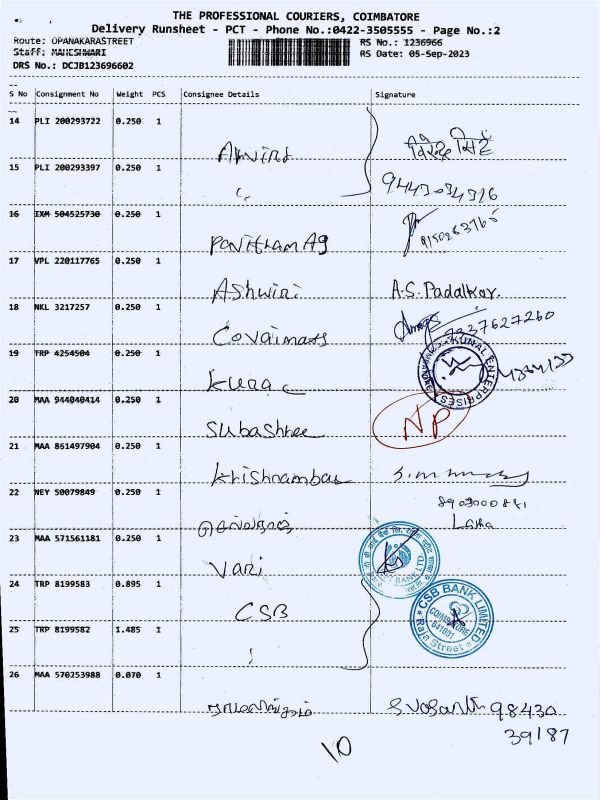 THE PROFESSIONAL COURIERS, COIMBATORE
Delivery Runsheet - PCT - Phone No.:0422-3505555 - Page No.:2
Route: OPANAKARASTREET RS No.: 1236966
Staff: MAHESHWARI RS Date: 05-Sep-2023
DRS No.: DCJB123696602
S No Consignment No Weight PCS Consignee Details Signature
14 PLI 200293722 0.250 1
15 PLI 200293397 0.250 1
9443034316
16 IXM 504525730 0.250 1
9150263765
17 VPL 220117765 0.250 1
Ashwini A.S. Padalkar.
18 NKL 3217257 0.250 1
Covaimats 7337627260
19 TRP 4254504 0.250 1
KUNAL ENTERPRISES
20 MAA 944040414 0.250 1
Subashree NP
21 MAA 861497904 0.250 1
22 NEY 50079849 0.250 1
23 MAA 571561181 0.250 1
Vari
24 TRP 8199583 0.895 1
CSB CSB BANK LIMITED
COIMBATORE
641001
Raja Street
25 TRP 8199582 1.485 1
26 MAA 570253988 0.070 1
98430
39187
10